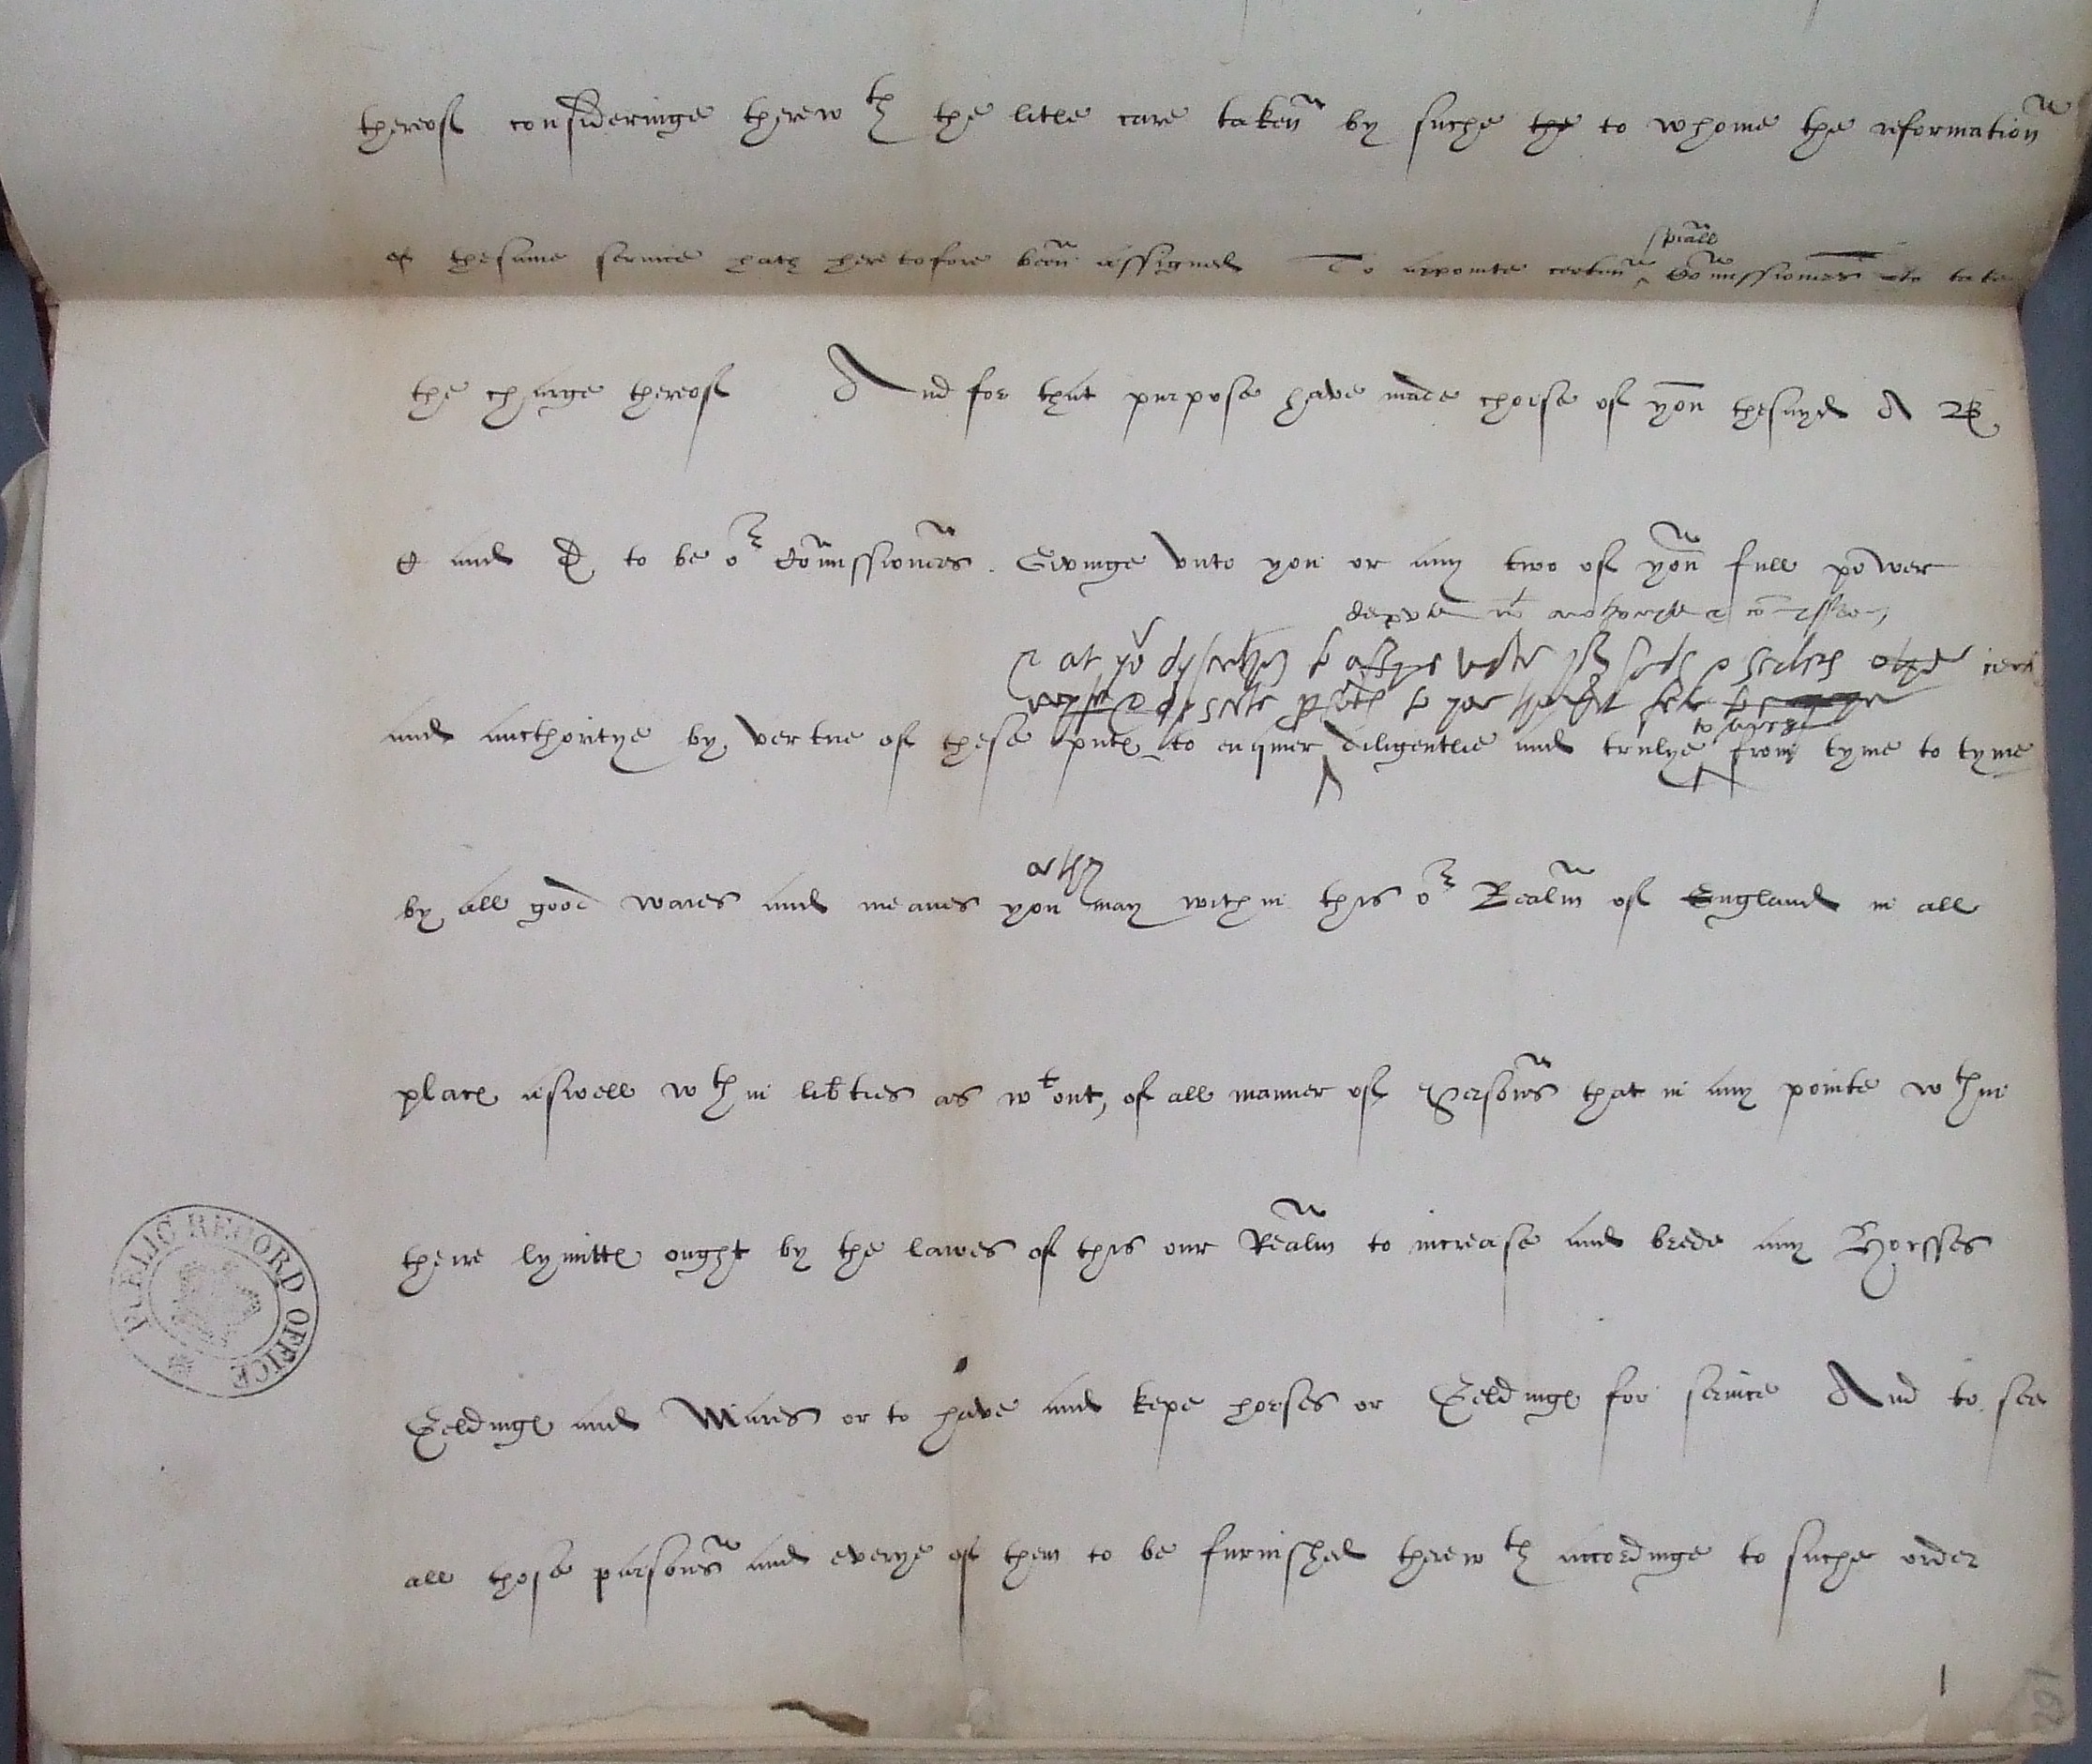 thereof consideringe therewth the litle care taken by suche the to whome the reformation
speciall
of thesame service hath heretofore been assigned To appointe certain Comissioners to take
the charge thereof And for that purpose have made choise of you thesayd A B
C and D to be or Comissioners. Givinge unto you or any two of you full power
depute
at yor dyscretion to
to
and aucthoritye by vertue of these pnts to enquier diligentlie and trulye from tyme to tyme
by all good waies and meanes you may within this or Realm of England in all
place aswell wthin libties as wtout, of all manner of Persons that in any pointe wthin
theire lymitts ought by the lawes of this our Realm to increase and brede any Horsses
Geldings and Mares or to have and kepe horses or Geldings for service And to see
all those parsons and everye of them to be furnished therewth accordinge to suche order
PUBLIC RECORD OFFICE
1